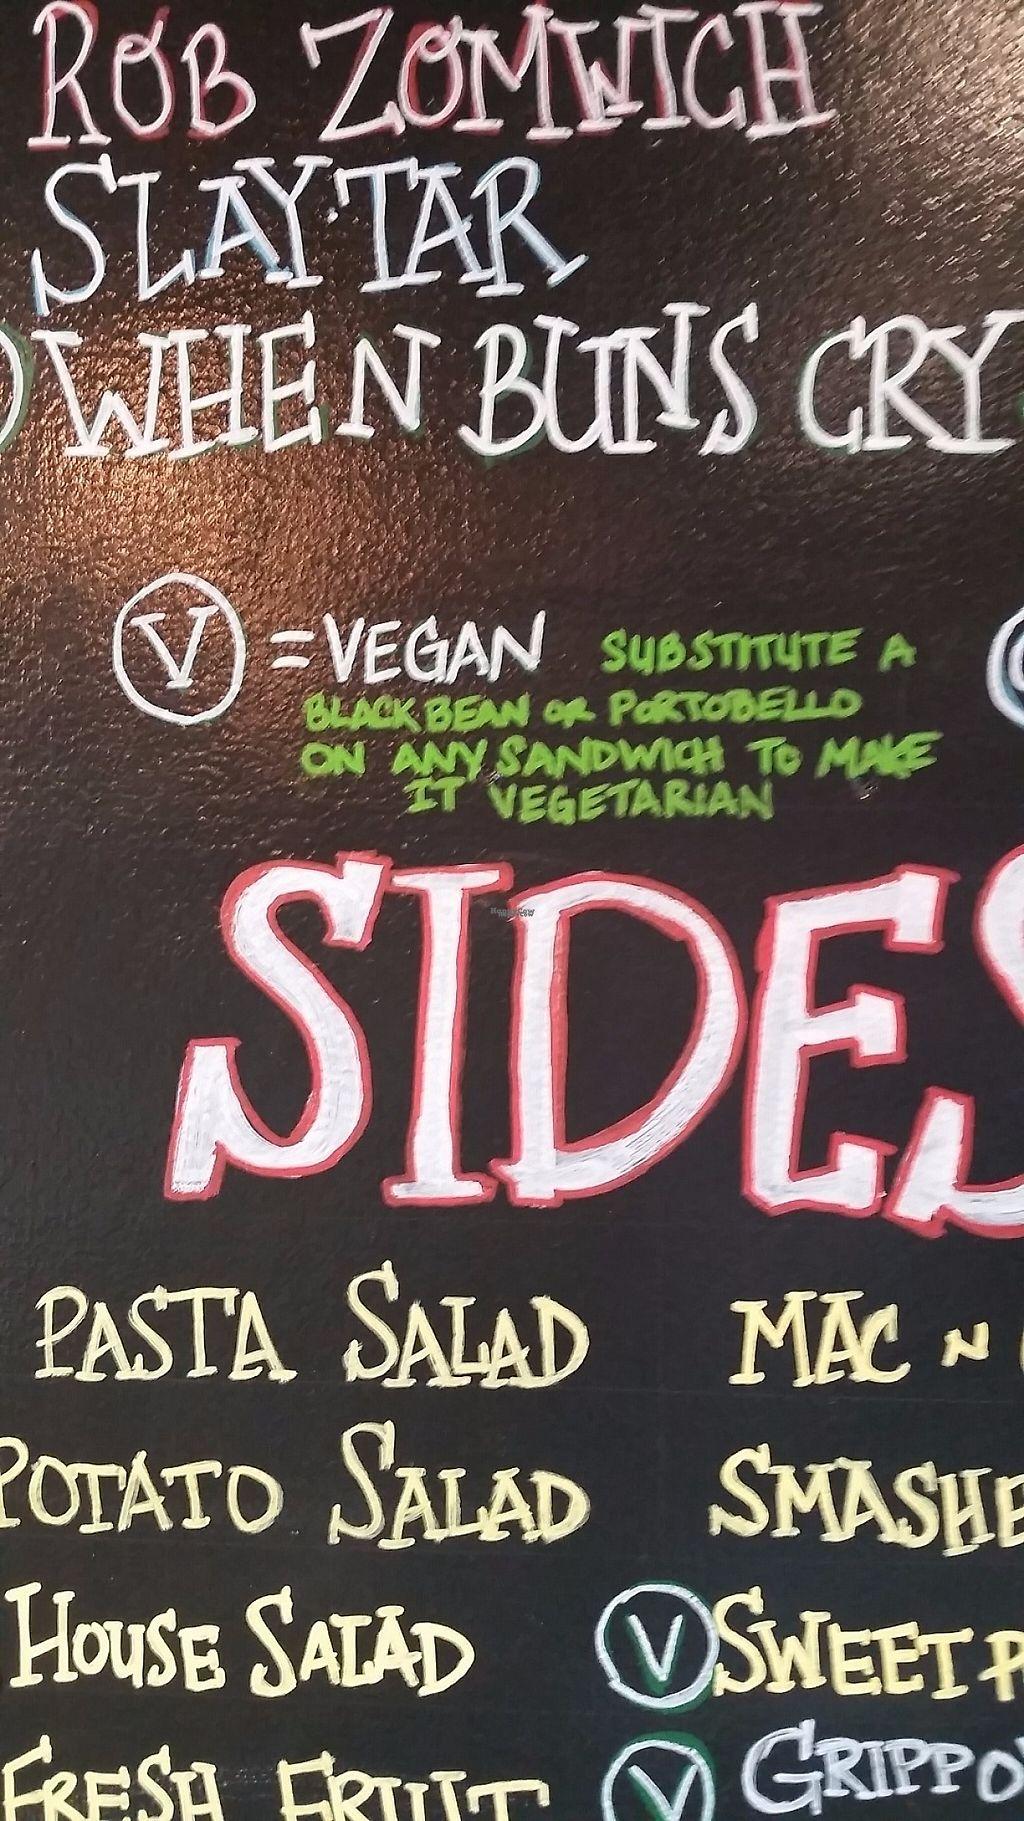 ROB ZOMWICH
SLAYTAR
WHEN BUNS CRY
V = VEGAN SUBSTITUTE A
BLACK BEAN OR PORTOBELLO
ON ANY SANDWICH TO MAKE
IT VEGETARIAN
SIDES
PASTA SALAD MAC N
POTATO SALAD SMASHE
HOUSE SALAD V SWEET P
FRESH FRUIT V GRIPPO